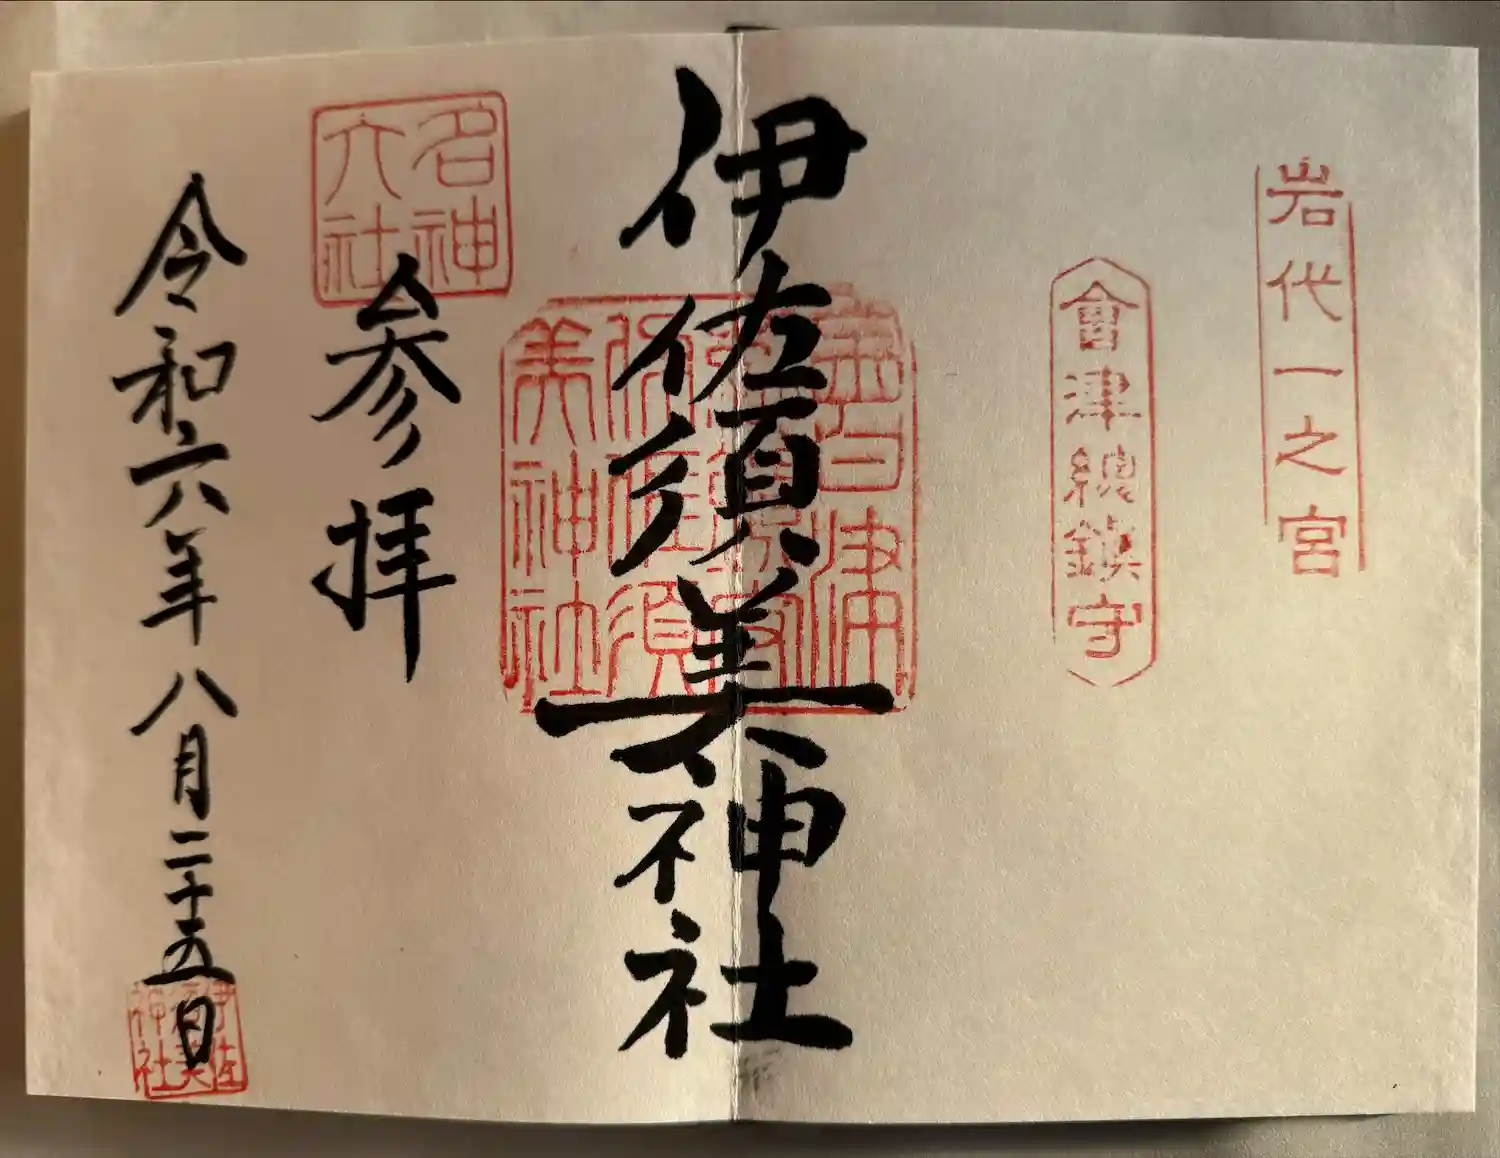 岩代一之宮
會津總鎮守
伊佐須美神社
名神
大社
参拝
令和六年八月二十五日
伊佐
須美
神社